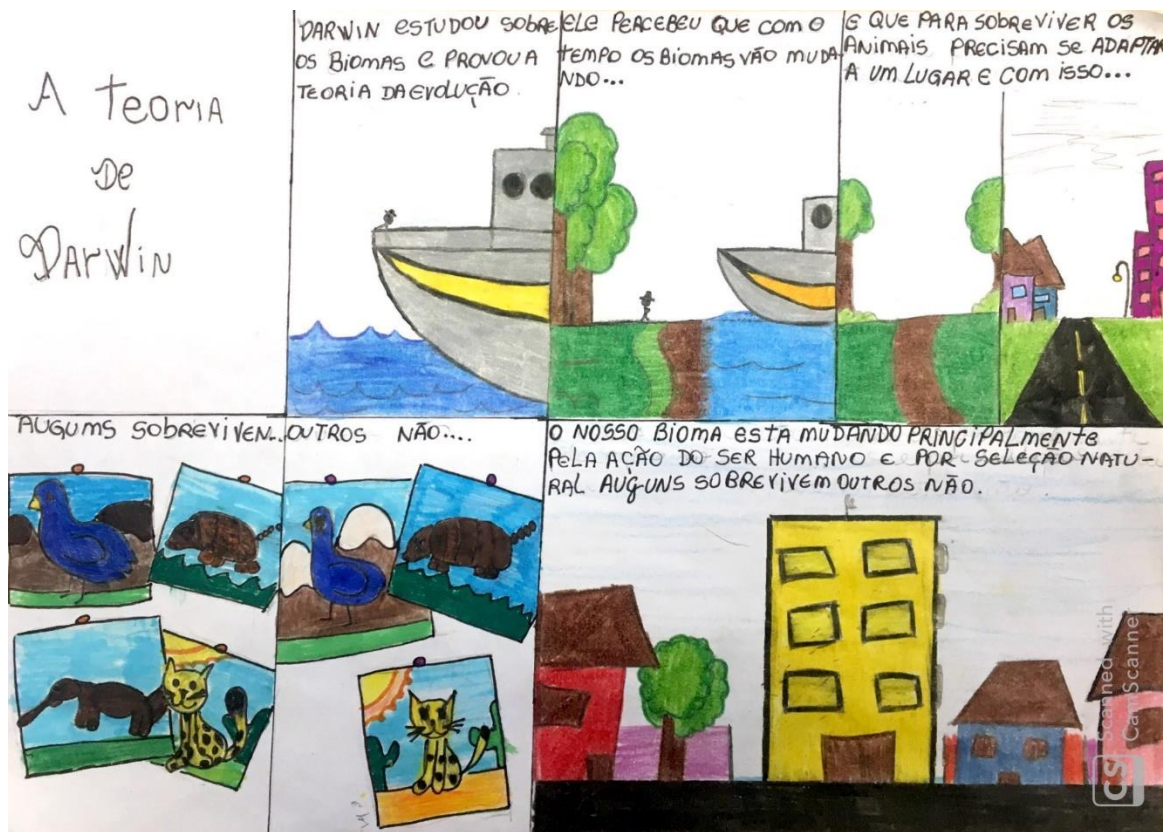 A Teoria
De
Darwin
DARWIN ESTUDOU SOBRE
OS BIOMAS E PROVOU A
TEORIA DA EVOLUÇÃO.
ELE PERCEBEU QUE COM O
TEMPO OS BIOMAS VÃO MUDA
NDO...
E QUE PARA SOBREVIVER OS
ANIMAIS PRECISAM SE ADAPTAR
A UM LUGAR E COM ISSO...
AUGUMS SOBREVIVEN...
OUTROS NÃO....
O NOSSO BIOMA ESTA MUDANDO PRINCIPALMENTE
PELA AÇÃO DO SER HUMANO E POR SELEÇÃO NATU-
RAL AUGUNS SOBREVIVEM OUTROS NÃO.
CS Scanned with
CamScanner